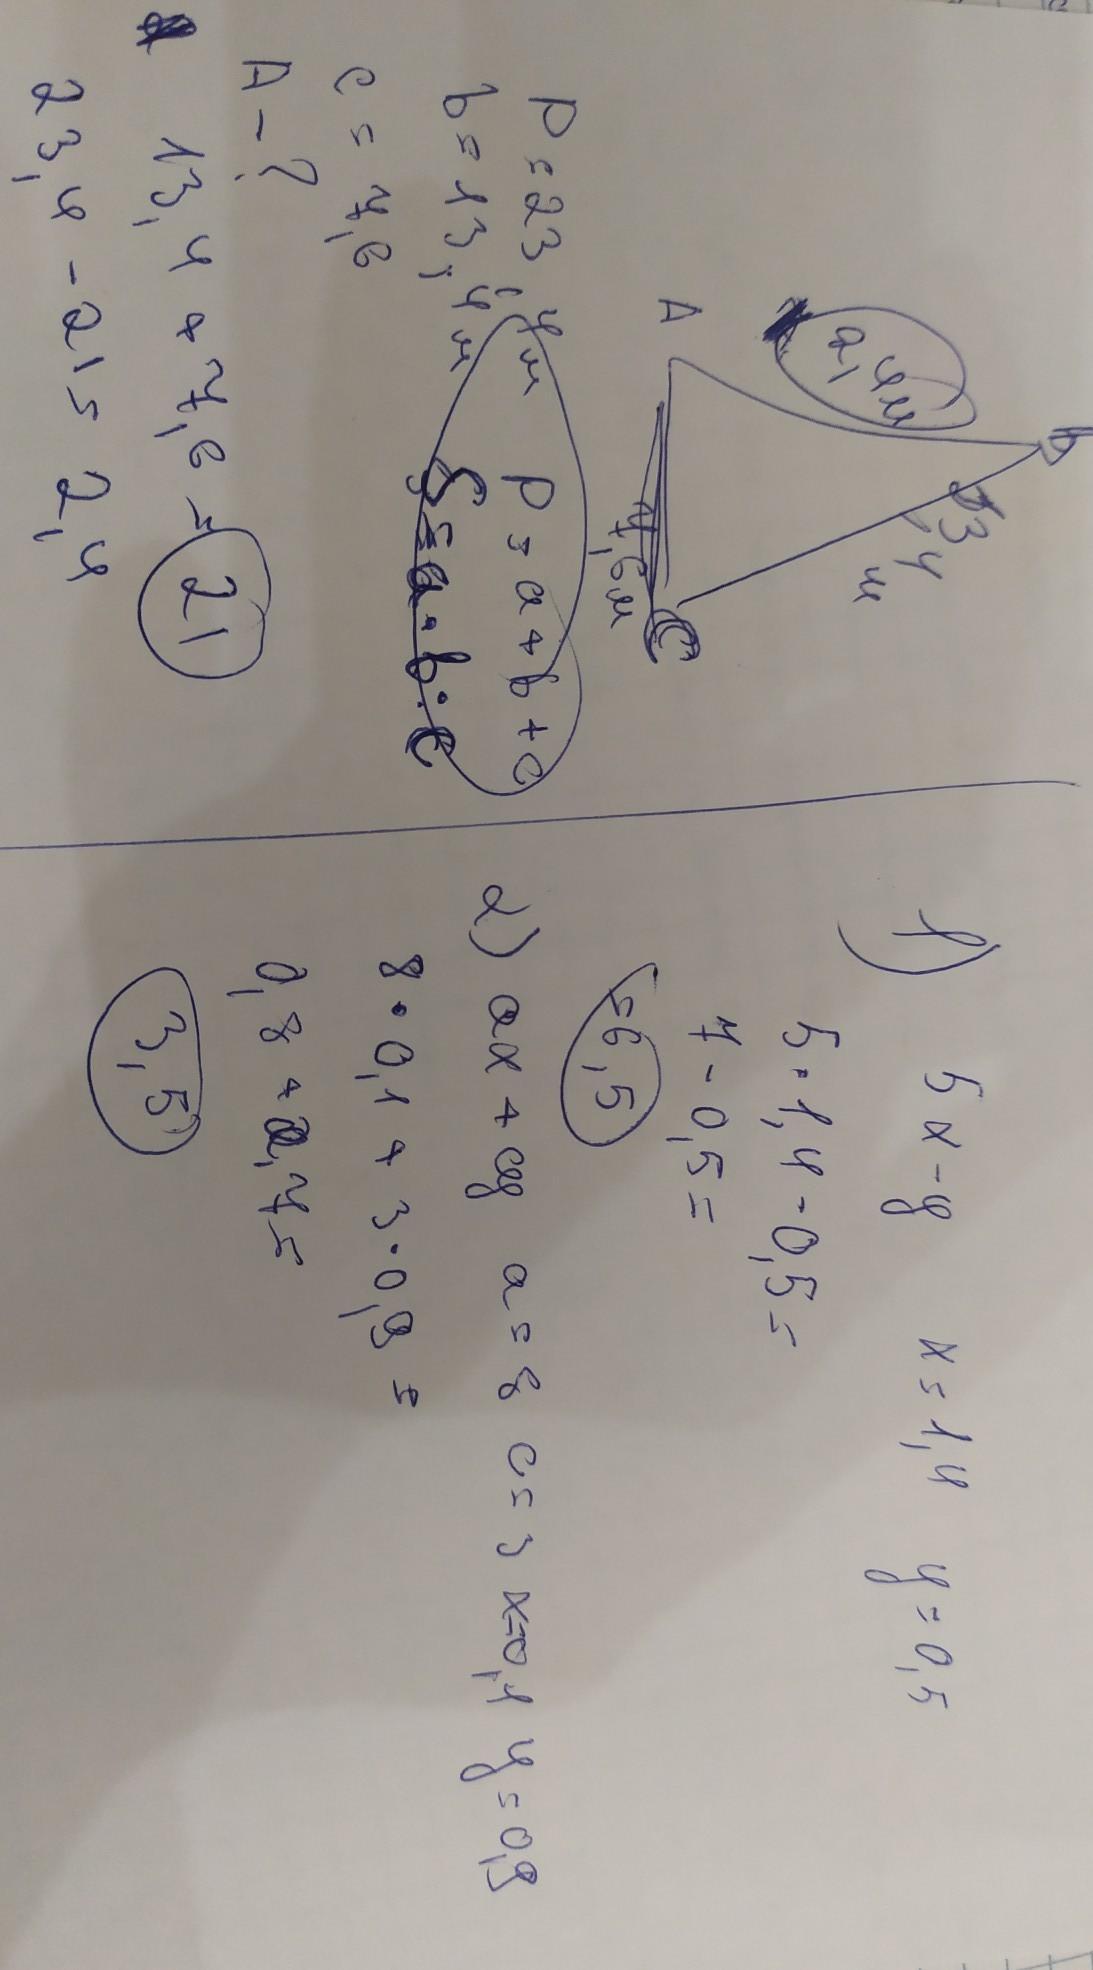 B
2,4м
13,4
м
A
7,6м
C
P = 23,4м
b = 13,4м
c = 7,6
A - ?
P = a + b + c
S = a · b · c
13,4 + 7,6 = 21
23,4 - 21 = 2,4
1) 5x - y x = 1,4 y = 0,5
5 · 1,4 - 0,5 =
7 - 0,5 =
= 6,5
2) ax + cy a = 8 c = 3 x = 0,1 y = 0,9
8 · 0,1 + 3 · 0,9 =
0,8 + 2,7 =
3,5